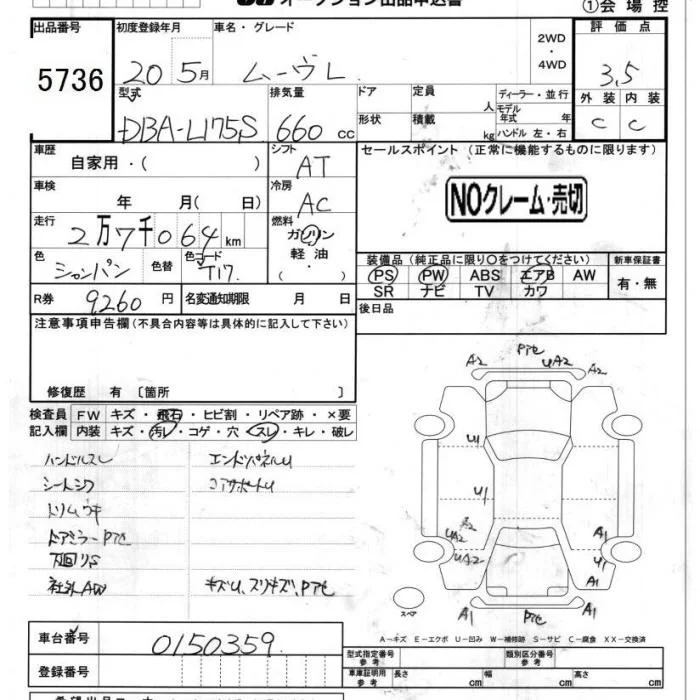 オークション出品申込書
①会場控
出品番号 初度登録年月 車名・グレード 評価点
5736 20 5月 ムーヴL 2WD・4WD 3,5
型式 排気量 ドア 定員 人 ディーラー・並行 外装 内装
DBA-L175S 660 cc 形状 積載 kg モデル年式 年 C C
ハンドル 左・右
車歴 シフト セールスポイント(正常に機能するものに限ります)
自家用・( ) AT
車検 冷房
年 月( 日) AC NOクレーム・売切
走行 燃料
2万7千064km ガソリン・軽油
色 色替 色コード ・( )
シャンパン T17 装備品(純正品に限り○をつけてください) 新車保証書
PS PW ABS エアB AW 有・無
SR ナビ TV カワ
R券 9260円 名変通知期限 月 日
後日品
注意事項申告欄(不具合内容等は具体的に記入して下さい)
修復歴 有〔箇所 〕
検査員 FW キズ・飛石・ヒビ割・リペア跡・×要
記入欄 内装 キズ・汚レ・コゲ・穴・スレ・キレ・破レ
ハンドルスレ エンドパネルU
シートシワ コアサポートU
トリムウキ
ドアミラーPアセ
下回りS
社外AW キズU、スリキズ、Pアセ
A2 Pアセ UA2 A2
U1
U1
A2
UA2 A1
UA2 U1
A1
スペア
A1 Pアセ A1
A-キズ E-エクボ U-凹み W-補修跡 S-サビ C-腐食 XX-交換済
車台番号 0150359
登録番号
型式指定番号 参考 類別区分番号 参考
車庫証明用 参考 長さ cm 幅 cm 高さ cm